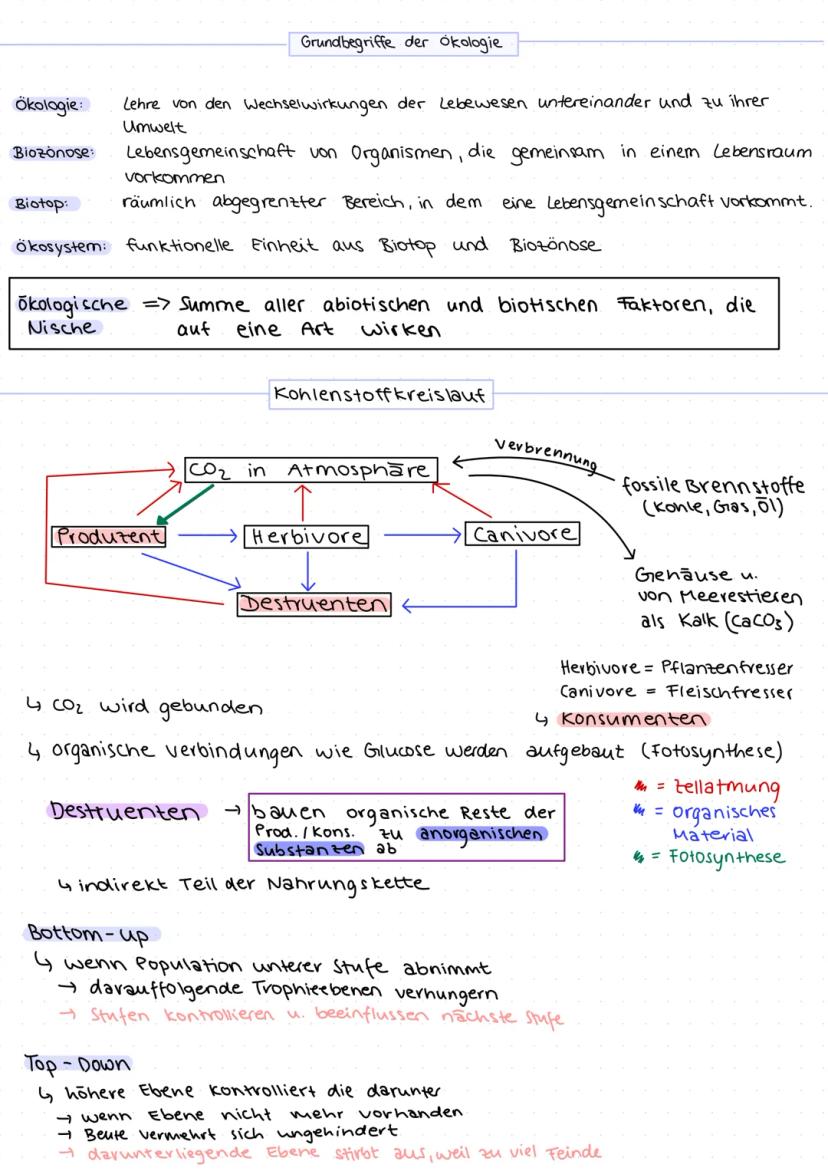 Grundbegriffe der Ökologie
Ökologie: Lehre von den Wechselwirkungen der Lebewesen untereinander und zu ihrer
Umwelt
Biozönose: Lebensgemeinschaft von Organismen, die gemeinsam in einem Lebensraum
vorkommen
Biotop: räumlich abgegrenzter Bereich, in dem eine Lebensgemeinschaft vorkommt.
Ökosystem: funktionelle Einheit aus Biotop und Biozönose
Ökologische => Summe aller abiotischen und biotischen Faktoren, die
Nische auf eine Art wirken
Kohlenstoffkreislauf
CO₂ in Atmosphäre
Verbrennung
fossile Brennstoffe
(Kohle, Gas, Öl)
Produzent
Herbivore
Canivore
Destruenten
Gehäuse u.
von Meerestieren
als Kalk (CaCO₃)
Herbivore = Pflanzenfresser
Canivore = Fleischfresser
↳ Konsumenten
↳ CO₂ wird gebunden
↳ organische Verbindungen wie Glucose werden aufgebaut (Fotosynthese)
= Zellatmung
= organisches
Material
= Fotosynthese
Destruenten → bauen organische Reste der
Prod./Kons. zu anorganischen
Substanzen ab
↳ indirekt Teil der Nahrungskette
Bottom-up
↳ wenn Population unterer Stufe abnimmt
→ darauffolgende Trophieebenen verhungern
→ Stufen kontrollieren u. beeinflussen nächste Stufe
Top-Down
↳ höhere Ebene kontrolliert die darunter
→ wenn Ebene nicht mehr vorhanden
→ Beute vermehrt sich ungehindert
→ darunterliegende Ebene stirbt aus, weil zu viel Feinde